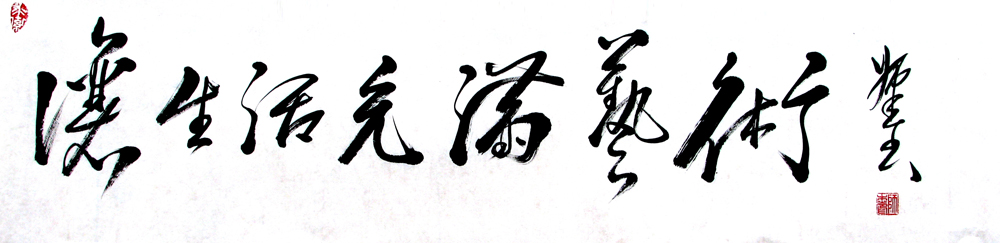 讓生活充滿藝術